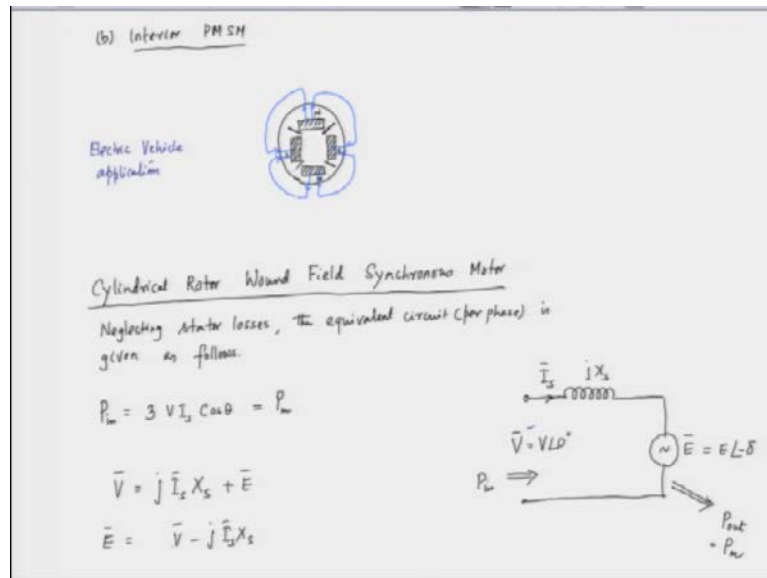 (b) Interior PMSM
Electric Vehicle
application
Cylindrical Rotor Wound Field Synchronous Motor
Neglecting stator losses, the equivalent circuit (per phase) is
given as follows.
P_in = 3 V I_s Cosθ = P_m
V̄ = j Ī_s X_s + Ē
Ē = V̄ - j Ī_s X_s
Ī_s jX_s
V̄ = V∠0°
~ Ē = E∠-δ
P_in ⇒
P_out
= P_m